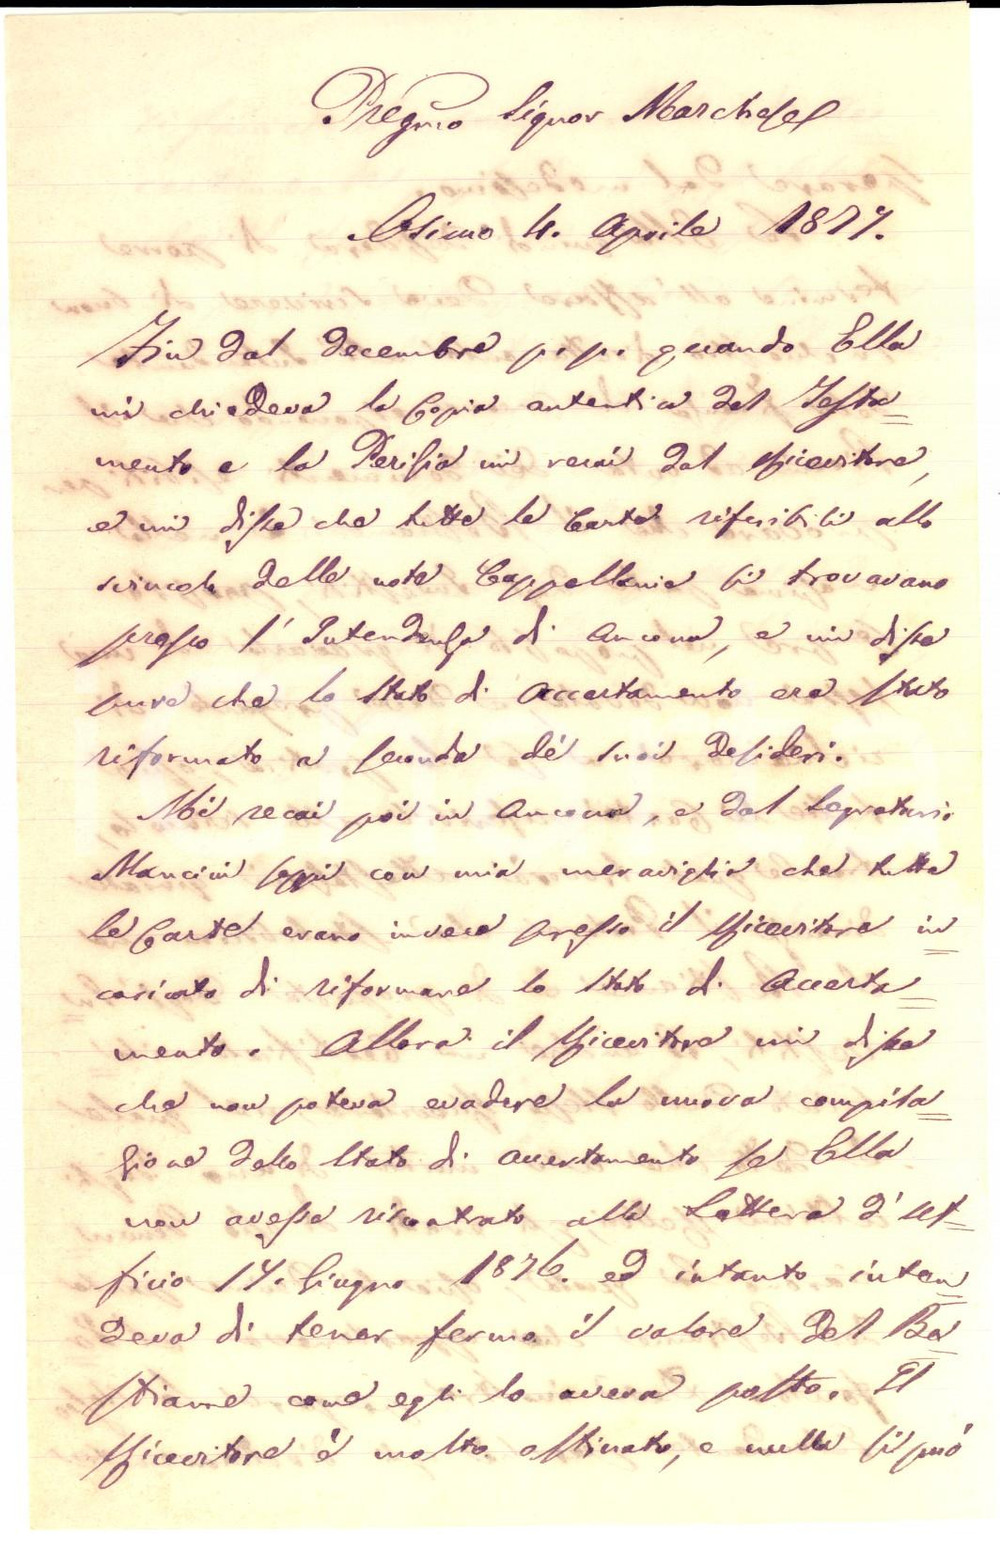 Pregmo Signor Marchese
Osimo 4. Aprile 1877.
Fin dal decembre p. p. quando Ella
mi chiedeva la Copia autentica del Testa=
mento e la Perizia mi recai dal Ricevitore,
e mi disse che tutte le Carte riferibili allo
svincolo delle note Cappellanie si trovavano
presso l'Intendenza di Ancona, e mi disse
pure che lo Stato di Accertamento era stato
riformato a seconda de' suoi desideri.
Mi recai poi in Ancona, e dal Segretario
Mancini seppi con mia meraviglia che tutte
le Carte erano invece presso il Ricevitore in=
caricato di riformare lo Stato di Accerta=
mento. Allora il Ricevitore mi disse
che non poteva evadere la nuova compila=
zione dello Stato di accertamento se Ella
non avesse riscontrato alla Lettera d'Uf=
ficio 14. Giugno 1876. ed intanto inten=
deva di tener fermo il valore del Be=
stiame come egli lo aveva posto. Il
Ricevitore è molto ostinato, e nulla si può